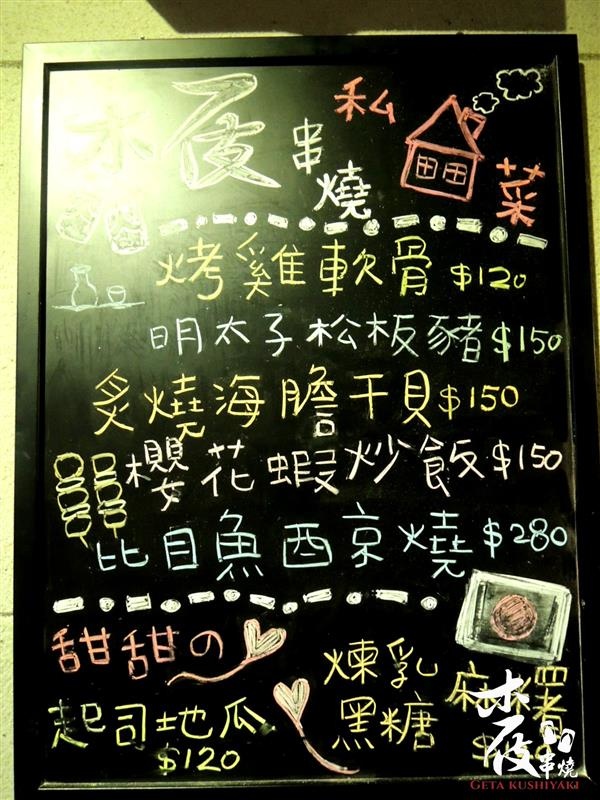 木屐串燒
私菜
烤雞軟骨 $120
明太子松板豬 $150
炙燒海膽干貝 $150
櫻花蝦炒飯 $150
比目魚西京燒 $280
甜甜の
起司地瓜
$120
煉乳
黑糖
麻糬
木屐串燒
GETA KUSHIYAKI